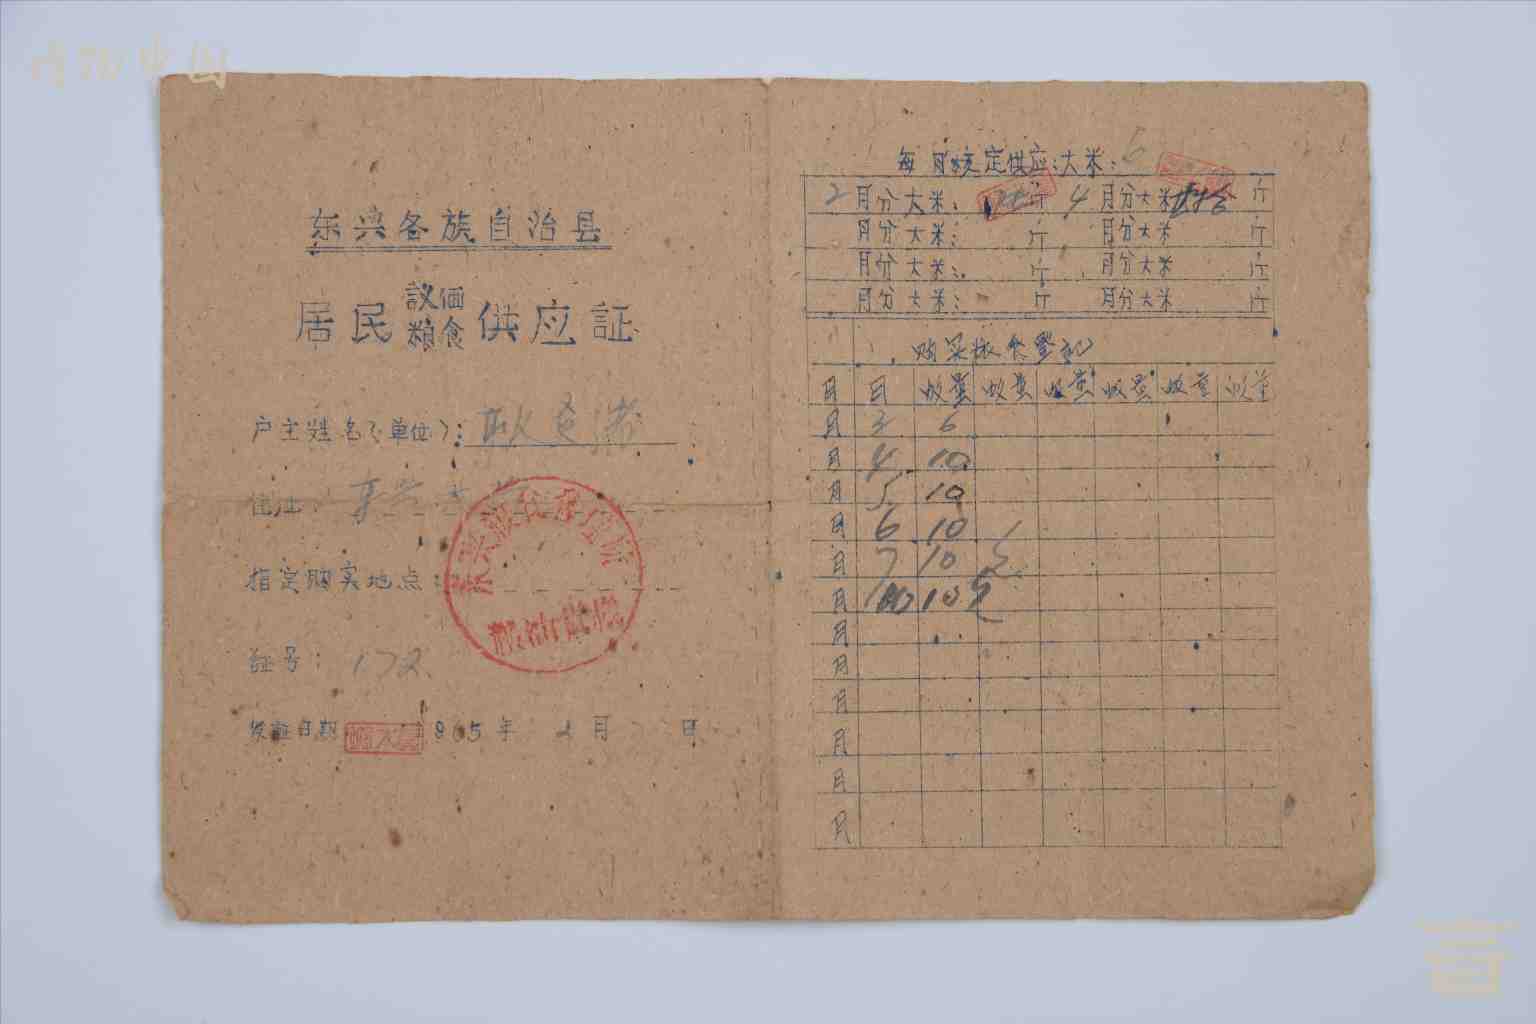 博物中国
东兴各族自治县
居民議価粮食供应証
户主姓名(单位):耿
住址:东兴
指定购买地点:
証号:172
发証日期 1965年 2月 日
每月核定供应:大米:6
2月分大米: 斤 4月分大米 拾 斤
月分大米: 斤 月分大米 斤
月分大米: 斤 月分大米 斤
月分大米: 斤 月分大米 斤
购买粮食登记
月 日 数量 数量 数量 数量 数量 数量
月 3 6
月 4 10
月 5 10
月 6 10
月 7 10
月 10
月
月
月
月
月
月